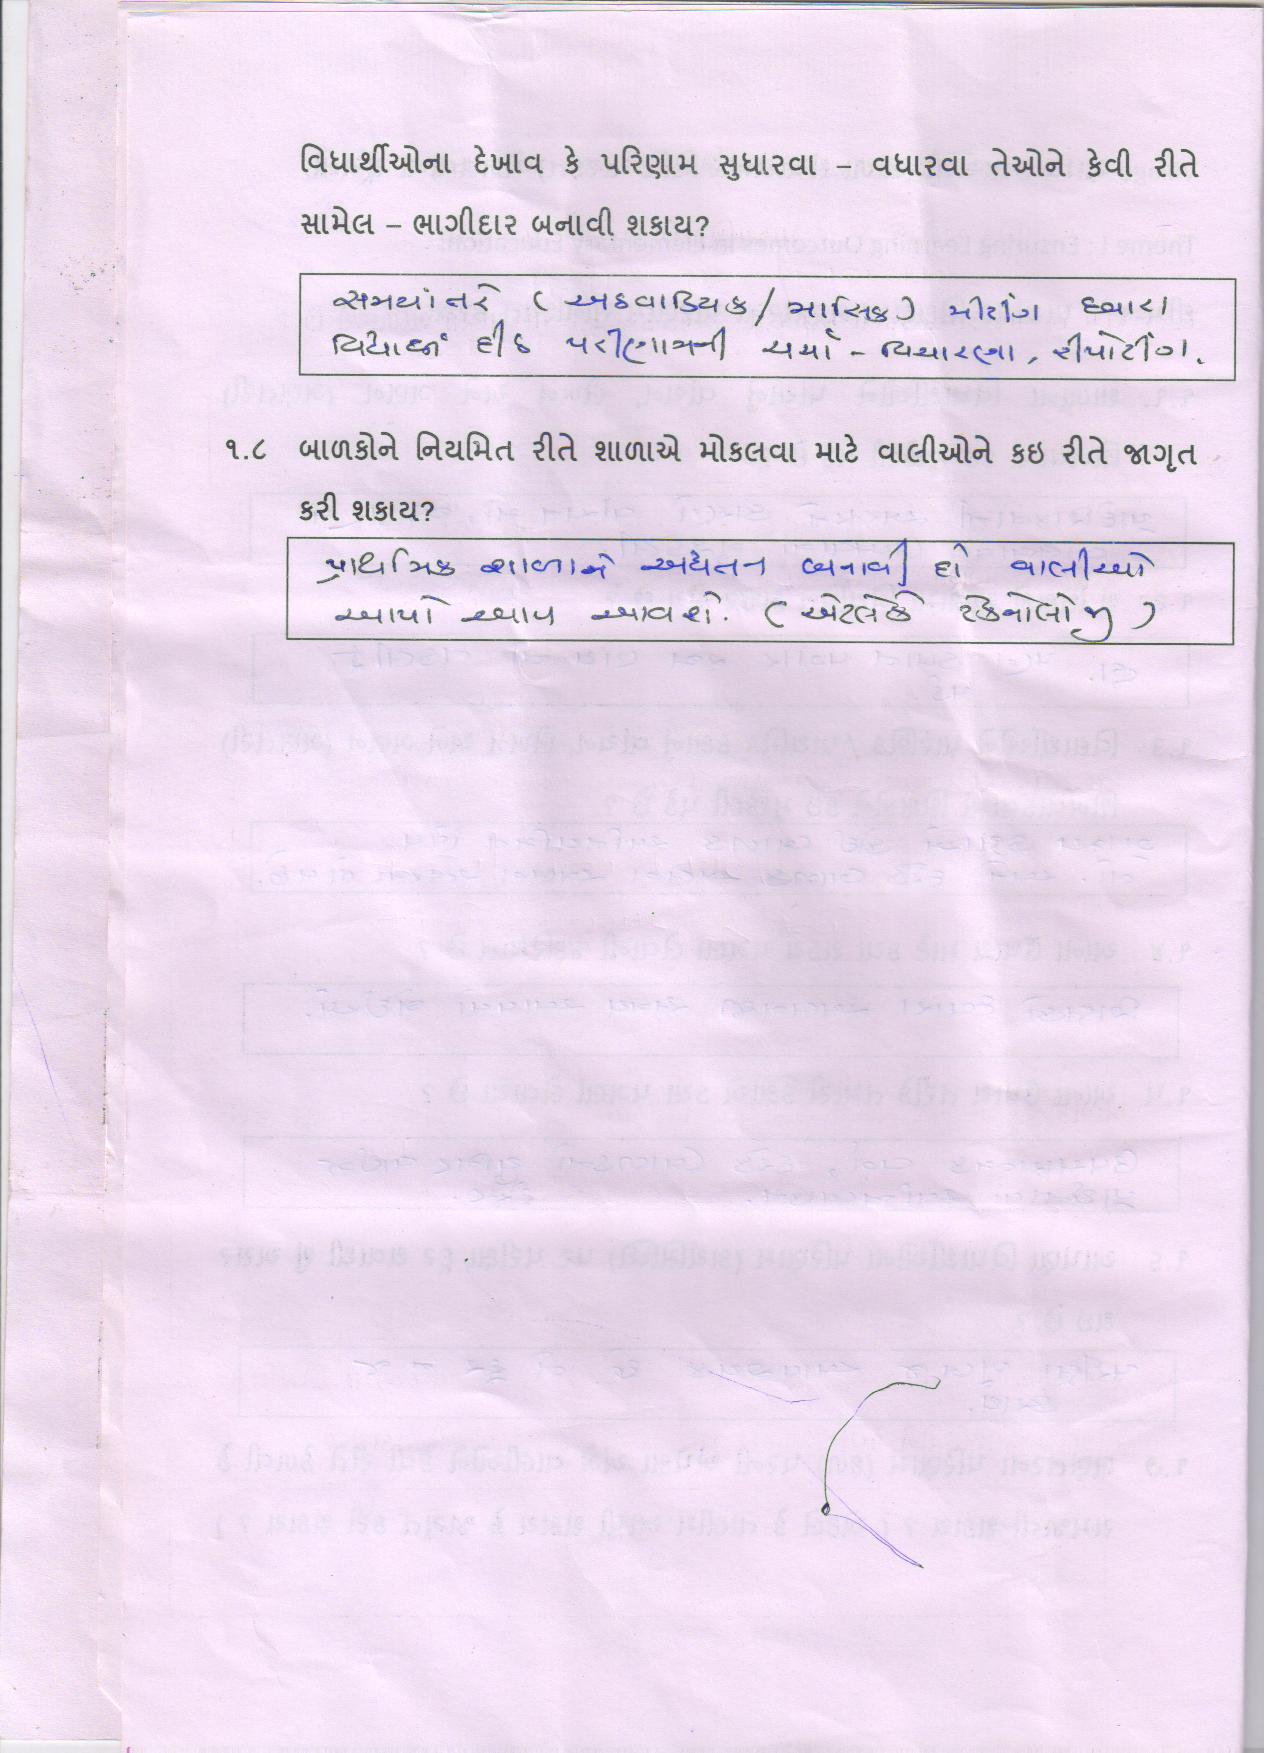 વિધાર્થીઓના દેખાવ કે પરિણામ સુધારવા – વધારવા તેઓને કેવી રીતે
સામેલ – ભાગીદાર બનાવી શકાય?
સમયાંતરે ( અઠવાડિયક / માસિક ) મીટીંગ દ્વારા
વિદ્યાર્થી દીઠ પરીણામની ચર્ચા - વિચારણા, રીપોર્ટીંગ.
૧.૮ બાળકોને નિયમિત રીતે શાળાએ મોકલવા માટે વાલીઓને કઇ રીતે જાગૃત
કરી શકાય?
પ્રાથમિક શાળાને અદ્યતન બનાવી દો વાલીઓ
આપો આપ આવશે. ( એટલેકે ટેકનોલોજી )